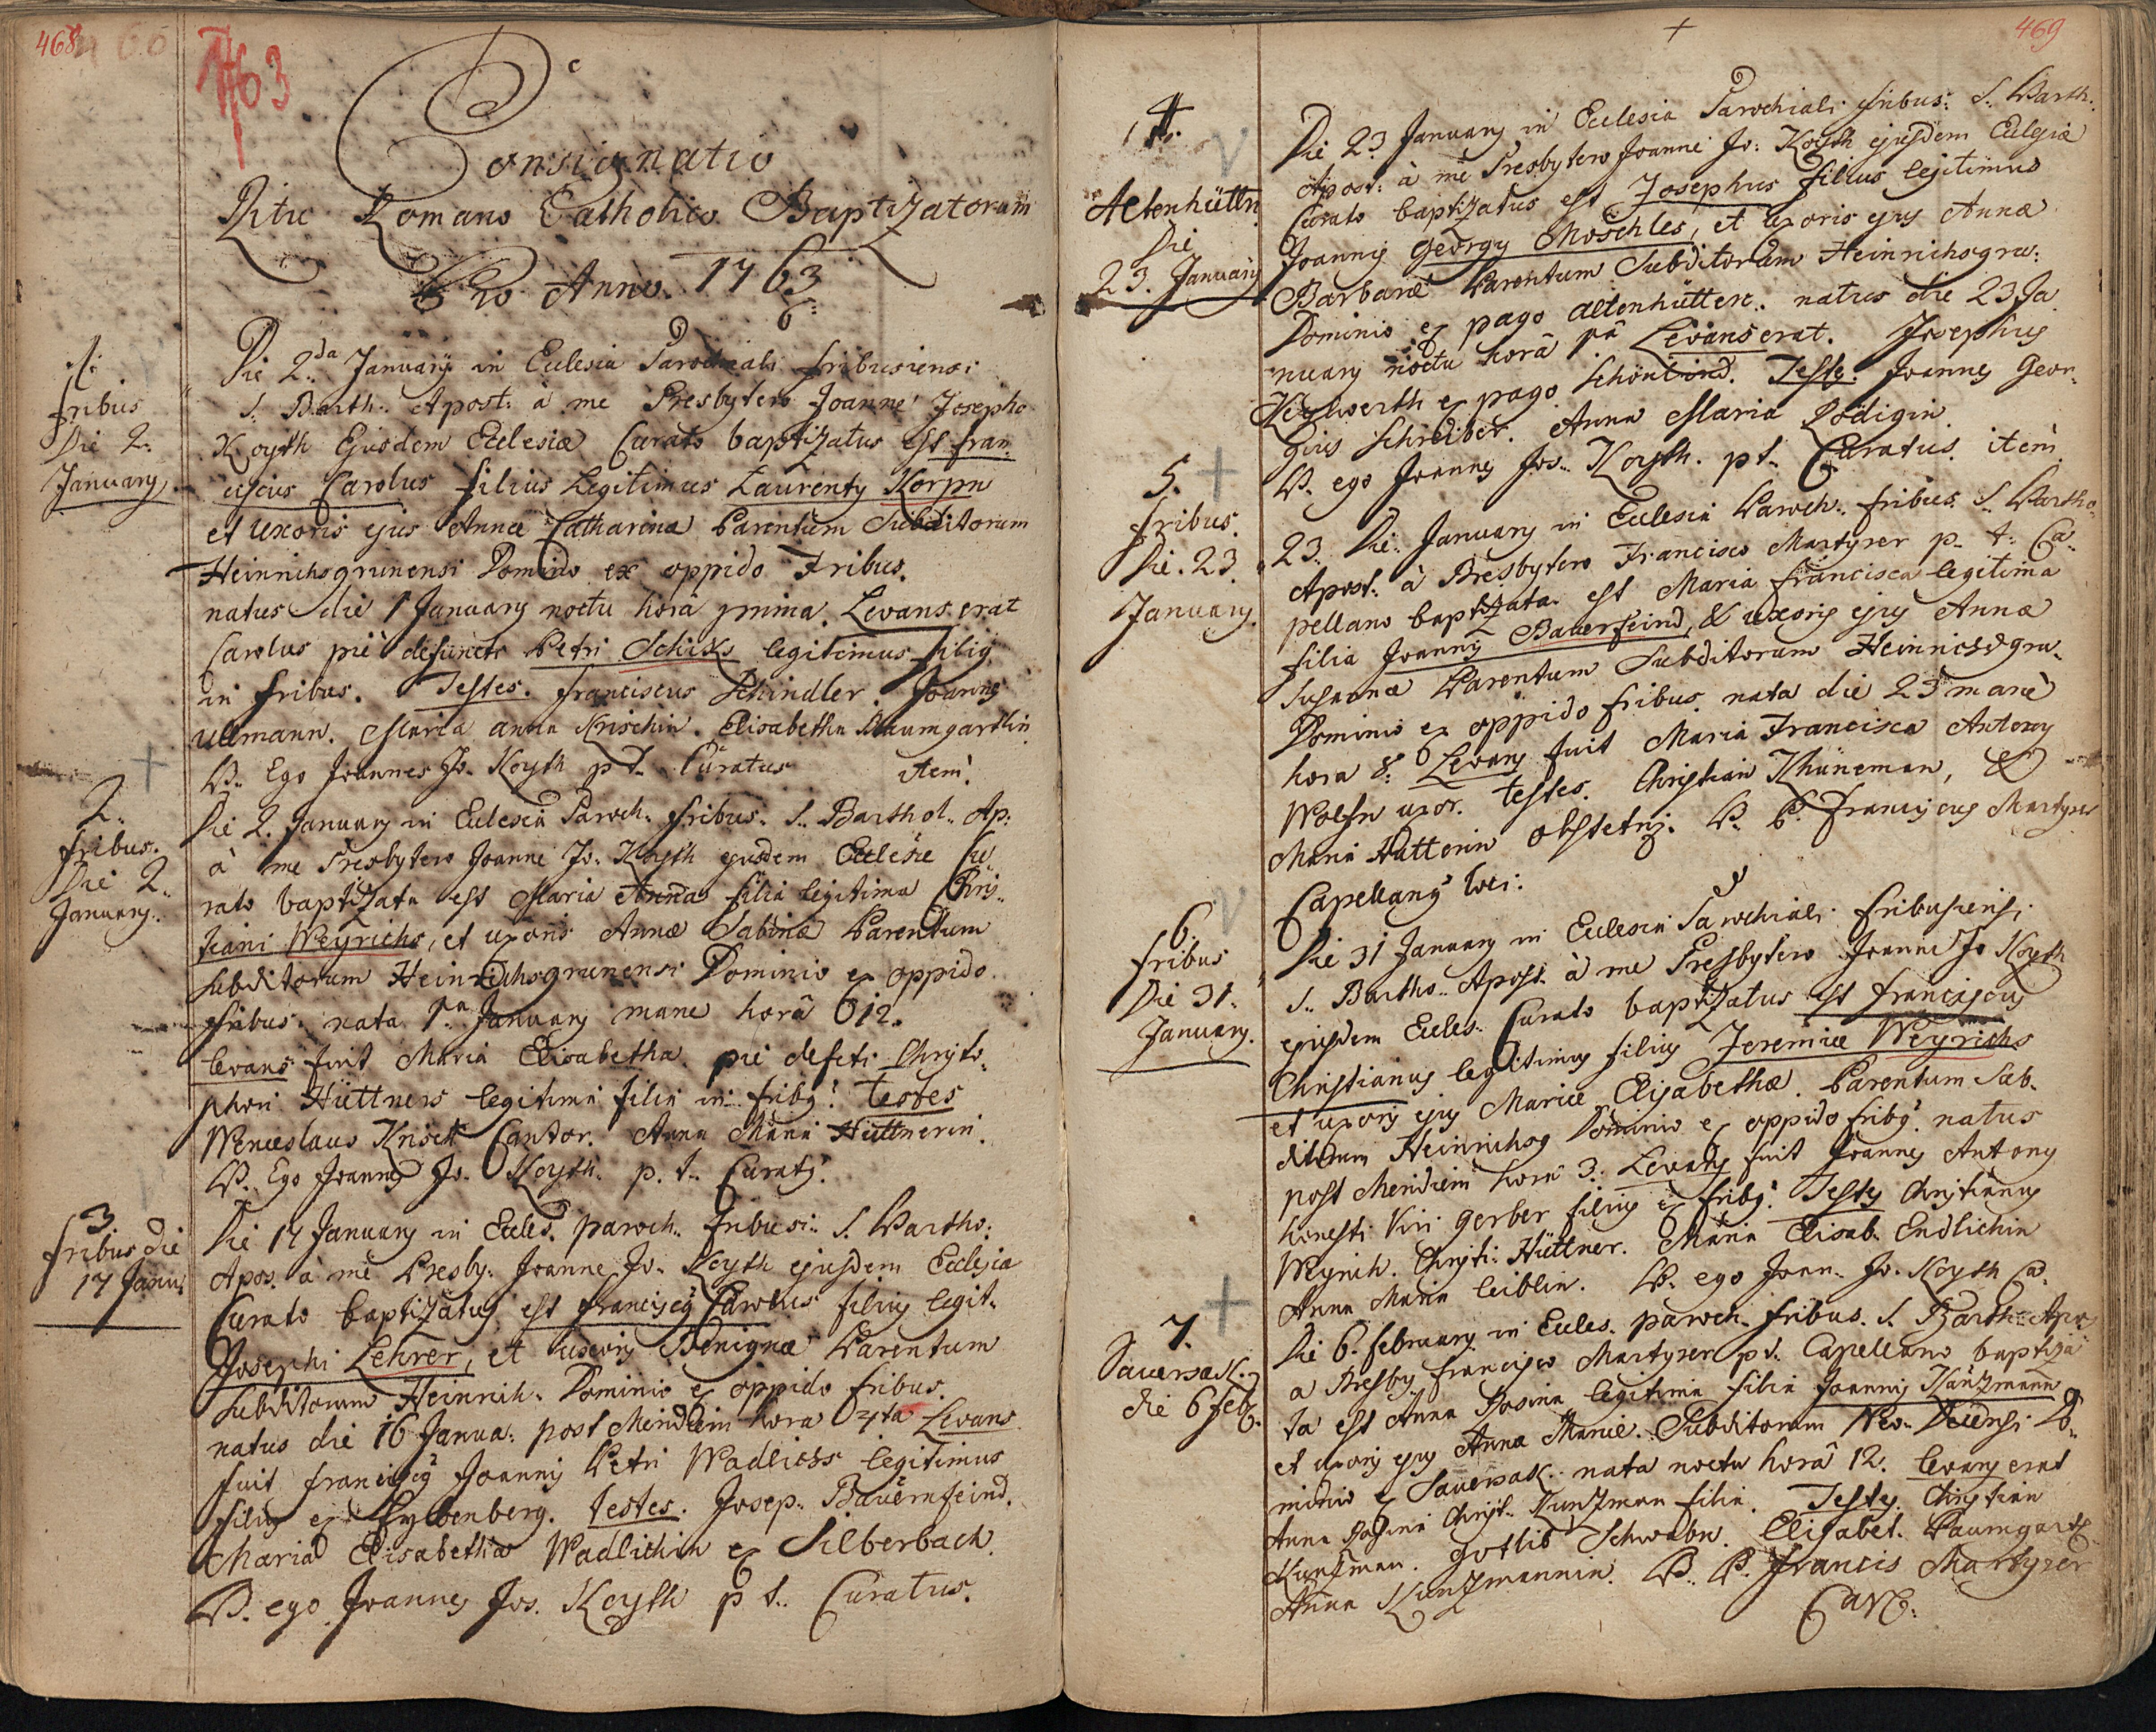 468
1763
Consignatio
Ritu Romano Catholico Baptizatorum
Pro Anno. 1763
1.
fribus
Die 2.
January
Die 2da January in Eclesia Parochiali fribusiensi
S. Barth. Apost. à me Presbytero Joanne Josepho
Koyth Ejusdem Eclesiæ Curato baptizatus est fran-
ciscus Carolus filius Legitimus Laurenty Korpn
et uxoris ejus Annæ Catharinæ Parentum Subditorum
Heinrichsgrunensi Dominio ex oppido Fribus.
natus die 1 January noctu horâ prima. Levans erat
Carolus piè defuncti Petri Schiks legitimus filig
in fribus. Testes. franciscus Schindler. Joannes
Ullmann. Maria anna Krischin. Elisabetha Baumgartlin
B. Ego Joannes Jo. Koyth p t. Curatus item.
2.
fribus.
Die 2.
January.
Die 2. January in Eclesia Paroch. fribus. S. Barthol. Ap:
à me Presbytero Joanne Jo. Koyth ejusdem Eclesiæ Cu-
rato baptizata est Maria Anna filia legitima Chris-
tiani Weyrichs, et uxoris Annæ Sabinæ Parentum
Subditorum Heinrichsgrunensi Dominio ex oppido
fribus. nata 1ma January mane horâ 12.
levans fuit Maria Elisabetha piè defcti Christo-
phori Hüttners legitima filia in fribg. testes
Wenceslaus Knisch Cantor. Anna Maria Hüttnerin.
B. Ego Joannes Jo. Koyth. p. t. Curatg.
3.
fribus die
17 Janu:
Die 17 January in Ecles. paroch. fribusi. S. Bartho:
Apos. à me Presby: Joanne Jo. Koyth ejusdem Eclesiæ
Curato baptizatus est franciscg Carolus filius legit.
Josephi Lehrer, et uxoris Benignæ Parentum
Subditorum Heinrich. Dominio ex oppido fribus.
natus die 16 Janua: post Meridiem hora 4ta Levans
fuit franciscg Joannis Petri Wadlichs legitimus
filius ex Eybenberg. testes. Josep. Bauernfeind.
Maria Elisabetha Wadlichin ex Silberbach.
B. ego Joannes Jos. Koyth p t. Curatus.
469
4.
Altenhüttn
Die
23. January
Die 23 January in Eclesia Parochiali fribus: S. Barth.
Apost: à me Presbytero Joanne Jo: Koyth ejusdem Eclesiæ
Curato baptizatus est Josephus filius legitimus
Joannis Georgy Moschles, et uxoris ejus Annæ
Barbaræ Parentum Subditorum Heinrichsgru:
Dominio ex pago altenhütten. natus die 23 Ja
nuary noctu horâ Levans erat. Josephus
Heylwerth ex pago Schönlind. Testes. Joannes Geor-
gius Schreiber. Anna Maria Rödigin.
B. ego Joannes Jos. Koyth. p t. Curatus. item
5.
fribus.
Die. 23.
January.
23. Die. January in Eclesia Paroch. fribus. S. Bartho-
Apost. à Presbytero Francisco Martyrer p. t. Ca-
pellano baptizata est Maria francisca legitima
filia Joannis Bauerfeind, & uxoris ejus Annæ
Susannæ Parentum Subditorum Heinrichsgru-
Dominio ex oppido fribus. nata die 23 mane
hora 8. Levans fuit Maria Francisca Antony
Wolfn uxor. testes. Christian Khüneman, &
Maria Hüttorin obstetrix. B. P. franciscus Martyrer
Capellang loci.
6.
fribus
Die 31.
January.
Die 31 January in Eclesia Parochiali fribusiensi
S. Bartho. Apost. à me Presbytero Joanne Jo Koyth
ejusdem Ecles. Curato baptizatus est franciscus
Christianus legitimus filius Jeremiæ Weyrichs
et uxoris ejus Mariæ Elisabethæ. Parentum Sub-
ditorum Heinrichsg Dominio ex oppido fribg. natus
post Meridiem hora 3. Levans fuit Joannes Antony
honesti Viri Gerber filius ex fribg. Testes Christianus
Weyrich. Christi: Hüttner. Maria Elisab. Endlichin
Anna Maria leiblin. B. ego Joan. Jo. Koyth Ca.
7.
Sauersak.
die 6 feb.
Die 6. february in Ecles. paroch. fribus. S. Barth. Apo
a Presby. francisco Martyrer p t. Capellano baptiza
ta est Anna Rosina legitima filia Joannis Kunzmann
et uxoris ejus Anna Mariæ. Subditorum Neo- Do-
minio ex Sauersak. nata noctu horâ 12. levans erat
Anna Rosina Christ. Kunzman filia. Testes. Christian
Kunzman. Gotlib Schwabn. Elisabet. Baumgart
Anna Kunzmannin. B. P. Francis Martyrer
Cap.